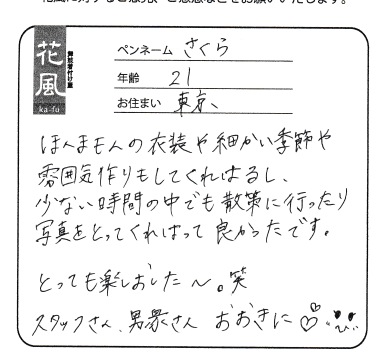 花風に対するご意見、ご感想などをお願いいたします。
花風
舞妓着付け屋
ka-fu
ペンネーム さくら
年齢 21
お住まい 東京、
ほんまもんの衣装や細かい季節や
雰囲気作りもしてくれはるし、
少ない時間の中でも散策に行ったり
写真をとってくれはって良かったです。
とっても楽しおした～。笑
スタッフさん、男衆さん おおきに♡